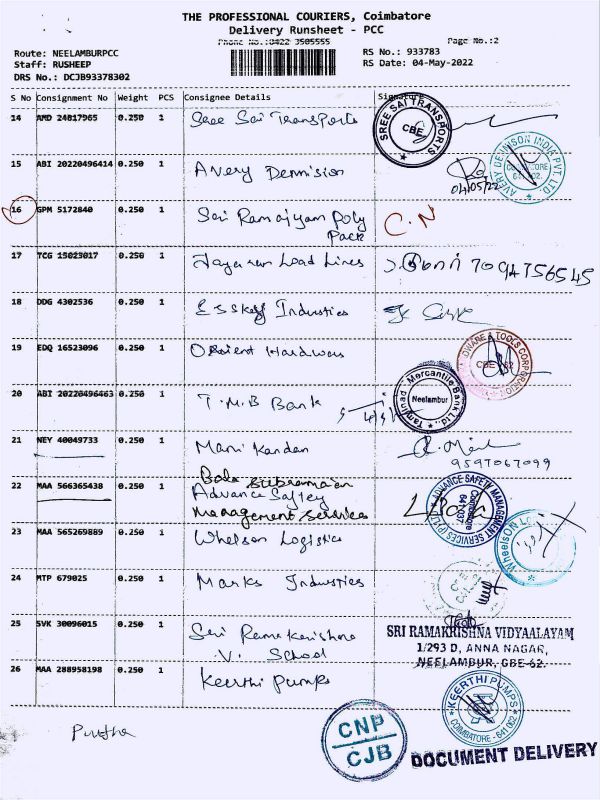 THE PROFESSIONAL COURIERS, Coimbatore
Delivery Runsheet - PCC
Phone No.:0422 3505555
Page No.:2
Route: NEELAMBURPCC
Staff: RUSHEEP
DRS No.: DCJB93378302
RS No.: 933783
RS Date: 04-May-2022
S No Consignment No Weight PCS Consignee Details Signature
14 AMD 24817965 0.250 1 Sree Sai Transports
SREE SAI TRANSPORTS CBE
15 ABI 20220496414 0.250 1 Avery Dennision
04/05/22
AVERY DENNISON INDIA PVT. LTD. COIMBATORE 641 062.
16 GPM 5172840 0.250 1 Sri Ramajyam Poly
Pack
C.N
17 TCG 15023017 0.250 1 Jayaram Load Lines
7094756545
18 DDG 4302536 0.250 1 Esskay Industies
19 EDQ 16523096 0.250 1 Orient Hardware
HARDWARE & TOOLS CORPORATION CBE 62
20 ABI 20220496463 0.250 1 T.M.B Bank
Tamilnad Mercantile Bank Ltd. Neelambur
21 NEY 40049733 0.250 1 Mani Kandan
9597067099
Bala Subramanian
22 MAA 566365438 0.250 1 Advance Saftey
Management Services
ADVANCE SAFETY MANAGEMENT SERVICES (P) LTD Coimbatore 641037
23 MAA 565269889 0.250 1 Whelson Logistics
WheelsON
24 MTP 679025 0.250 1 Marks Industies
25 SVK 30096015 0.250 1 Sri Ramakrishna
V. School
SRI RAMAKRISHNA VIDYAALAYAM
1/293 D, ANNA NAGAR,
NEELAMBUR, CBE-62.
26 MAA 288958198 0.250 1 Keerthi Pumps
KEERTHI PUMPS COIMBATORE - 641 062
CNP
CJB
DOCUMENT DELIVERY